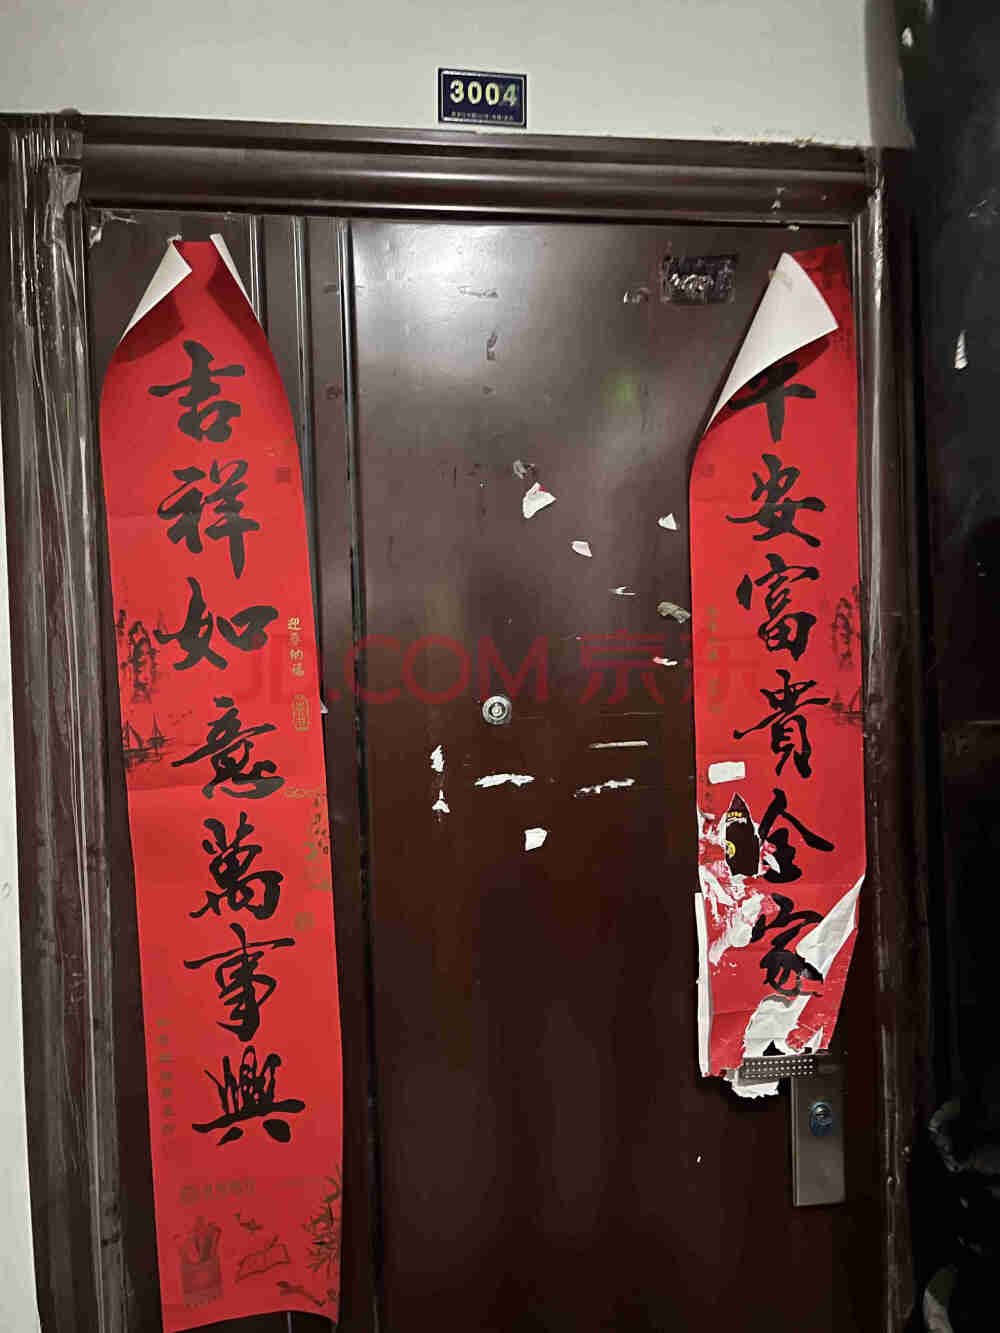 3004
平安富貴全家
吉祥如意萬事興
迎春纳福
JD.COM 京东